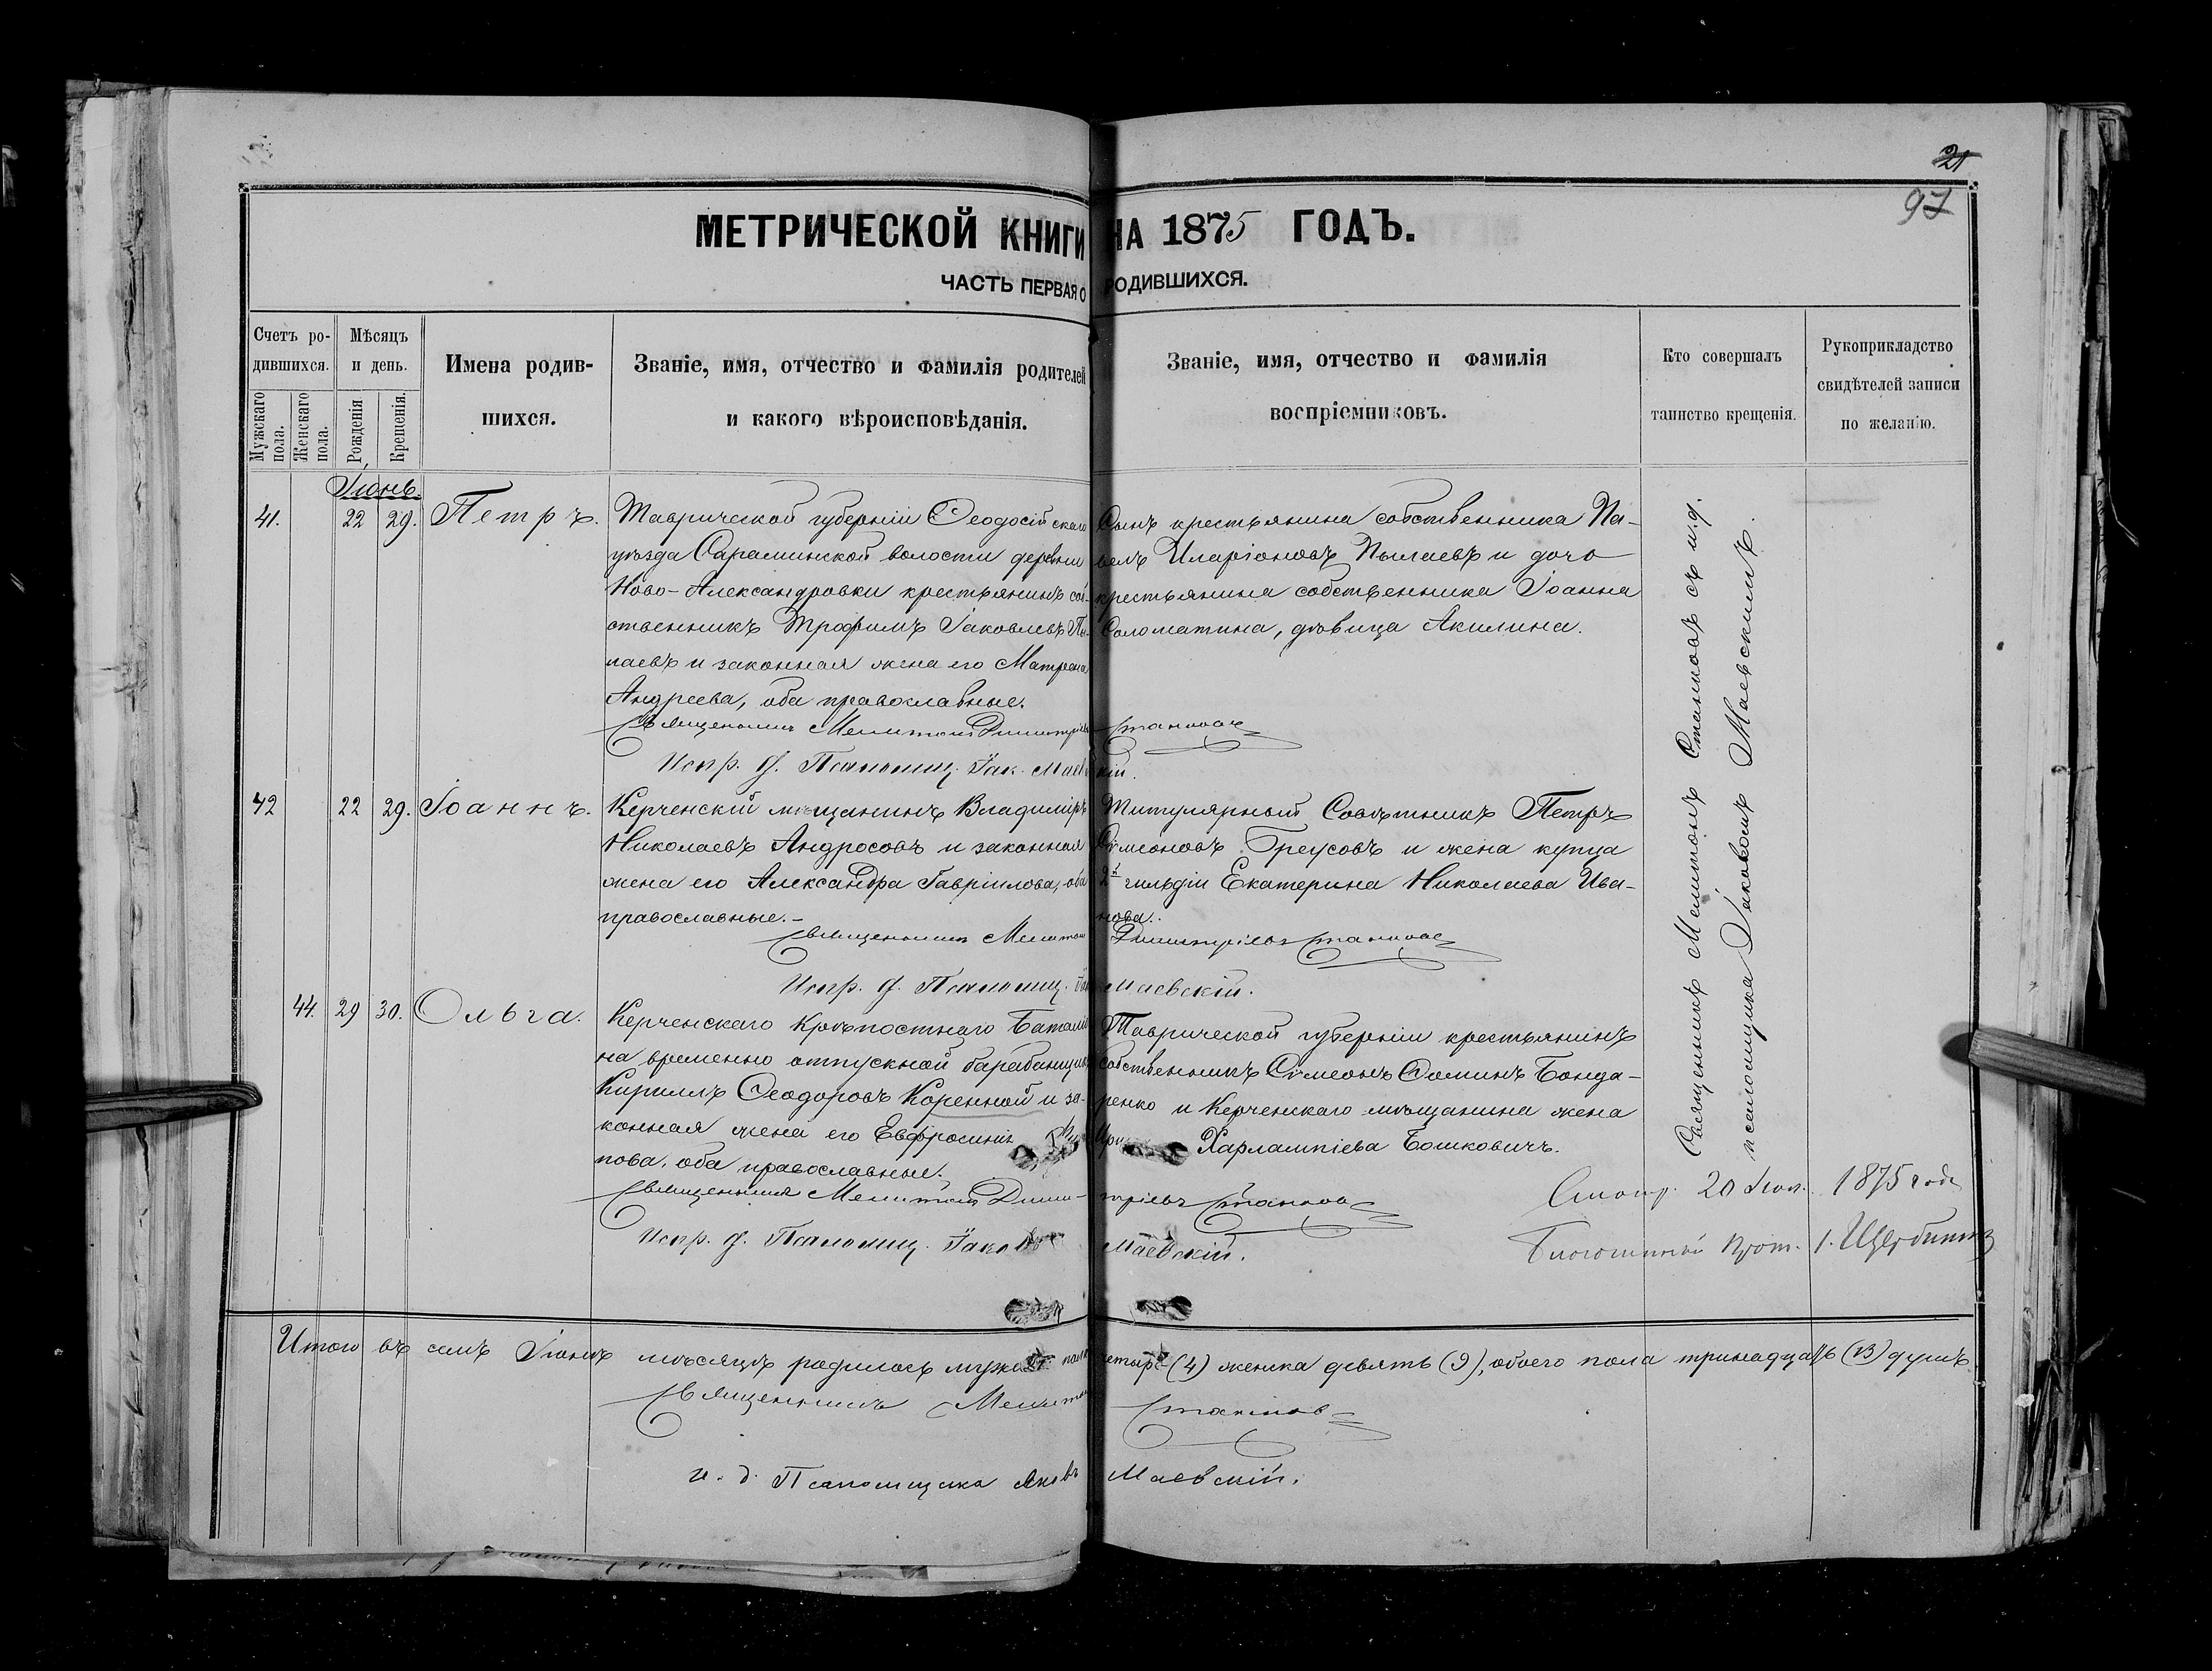 21
97
МЕТРИЧЕСКОЙ КНИГИ НА 1875 ГОДЪ.
ЧАСТЬ ПЕРВАЯ О РОДИВШИХСЯ.
Счетъ ро-
дившихся.
Мужскаго пола.
Женскаго пола.
Мѣсяцъ
и день.
Рожденія
Крещенія.
Имена родив-
шихся.
Званіе, имя, отчество и фамилія родителей
и какого вѣроисповѣданія.
Званіе, имя, отчество и фамилія
воспріемниковъ.
Кто совершалъ
таинство крещенія.
Рукоприкладство
свидѣтелей записи
по желанію.
Іюнь.
41. 22 29. Петръ.
Таврической губерніи Ѳеодосійскаго
уѣзда Сараминской волости деревни
Ново-Александровки крестьянинъ соб-
ственникъ Трофимъ Іаковлевъ Пы-
лаевъ и законная жена его Матрона
Андреева, оба православные.
Сынъ крестьянина собственника Па-
велъ Иларіоновъ Пылаевъ и дочь
крестьянина собственника Іоанна
Соломатина, дѣвица Акилина.
Священникъ Мелитонъ Димитріевъ Станковъ
Испр. д. Псаломщ. Іак. Маевскій.
42 22 29. Іоаннъ.
Керченскій мѣщанинъ Владиміръ
Николаевъ Андросовъ и законная
жена его Александра Гавріилова, оба
православные.-
Титулярный Совѣтникъ Петръ
Сѵмеоновъ Греусовъ и жена купца
2й гильдіи Екатерина Николаева Ива-
нова.
Священникъ Мелитонъ Димитріевъ Станковъ
Испр. д. Псаломщ. Маевскій.
44. 29 30. Ольга.
Керченскаго Крѣпостнаго Баталіо
на временно отпускной барабанщикъ
Кириллъ Ѳеодоровъ Коренной и за-
конная жена его Евфросинія
пова, оба православные.
Таврической губерніи крестьянинъ
собственникъ Сѵмеонъ Ѳоминъ Бонда-
ренко и Керченскаго мѣщанина жена
Харлампіева Бошковичъ.
Священникъ Мелитонъ Дими-тріевъ Станковъ
Испр. д. Псаломщ. Іаковъ Маевскій.
Священникъ Мелитонъ Станковъ съ и.д.
псаломщика Іаковомъ Маевскимъ.
Смотр. 20 1875 года
Благочинный Прот. І. Щербина
Итого въ семъ Іюнѣ мѣсяцѣ родилось мужска пола четыре (4) женска девять (9), обоего пола тринадцать (13) душъ.
Священникъ Мелитонъ Станковъ
и. д. Псаломщика Яковъ Маевскій.